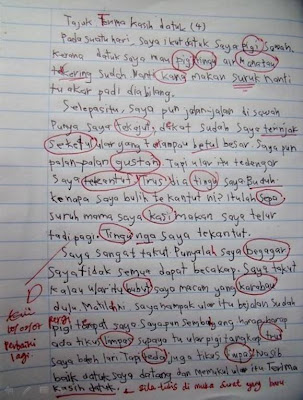 Tajuk Terima kasih datuk (4)
Pada suatu hari, saya ikut datuk saya pigi sawah.
kerana datuk saya mau pigi ninguk air
kering sudah. Nanti kang makan suruk nanti
tu akar padi dia bilang.
Selepas itu, saya pun jalan-jalan di sawah
Punya saya tekajut, dikat sudah saya ternijak
seketul ular yang betul besar. Saya pun
palan-palan gustan. Tapi ular itu tedengar
Saya tekentut. Trus dia tingu saya. Buduh
kenapa saya bulih te kantut ni? Itulah sepa
suruh mama saya kasi makan saya telur
tadi pagi. Tingunga saya tekantut.
Saya sangat takut. Punyalah saya begagar
Saya tidak semua dapat becakap. Saya takut
kalau ular itu bubui saya macam yang karabau
dulu. Mati bini. Saya nampak ular itu bejalan sudah
pigi tempat saya. Saya pun harap-harap
ada tikus limpas supaya tu ular pigi tangkap trus
saya buleh lari. Tapi teda juga tikus supay. Nasib
baik datuk saya datang dan ular itu. Terima
kasih datuk. - Sila tulis di muka surat yang baru
perbaiki
lagi.